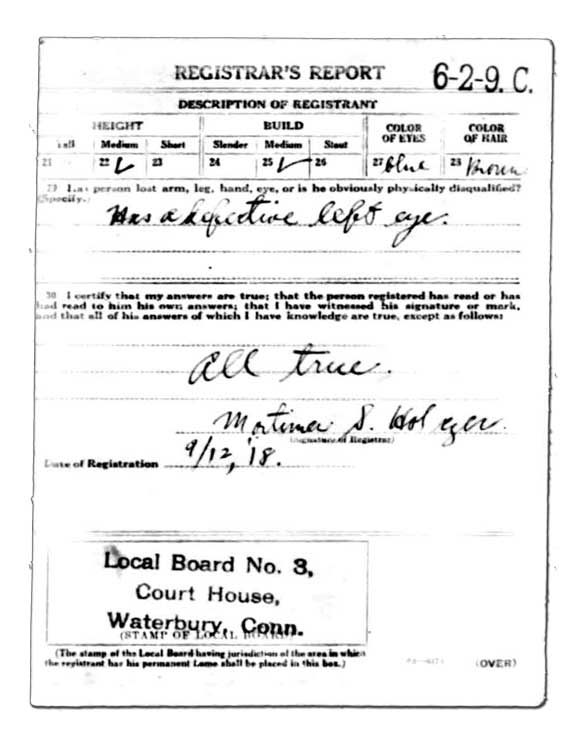 REGISTRAR'S REPORT
6-2-9. C.
DESCRIPTION OF REGISTRANT
HEIGHT BUILD COLOR OF EYES COLOR OF HAIR
Tall Medium Short Slender Medium Stout
21 22 ✓ 23 24 25 ✓ 26 27 Blue 28 Brown
29 Has person lost arm, leg, hand, eye, or is he obviously physically disqualified?
(Specify.)
Has a defective left eye.
30 I certify that my answers are true; that the person registered has read or has
had read to him his own answers; that I have witnessed his signature or mark,
and that all of his answers of which I have knowledge are true, except as follows:
All true.
Mortimer S.
(Signature of Registrar)
Date of Registration 9/12, '18.
Local Board No. 3,
Court House,
Waterbury, Conn.
(STAMP OF LOCAL BOARD)
(The stamp of the Local Board having jurisdiction of the area in which
the registrant has his permanent home shall be placed in this box.)
(OVER)